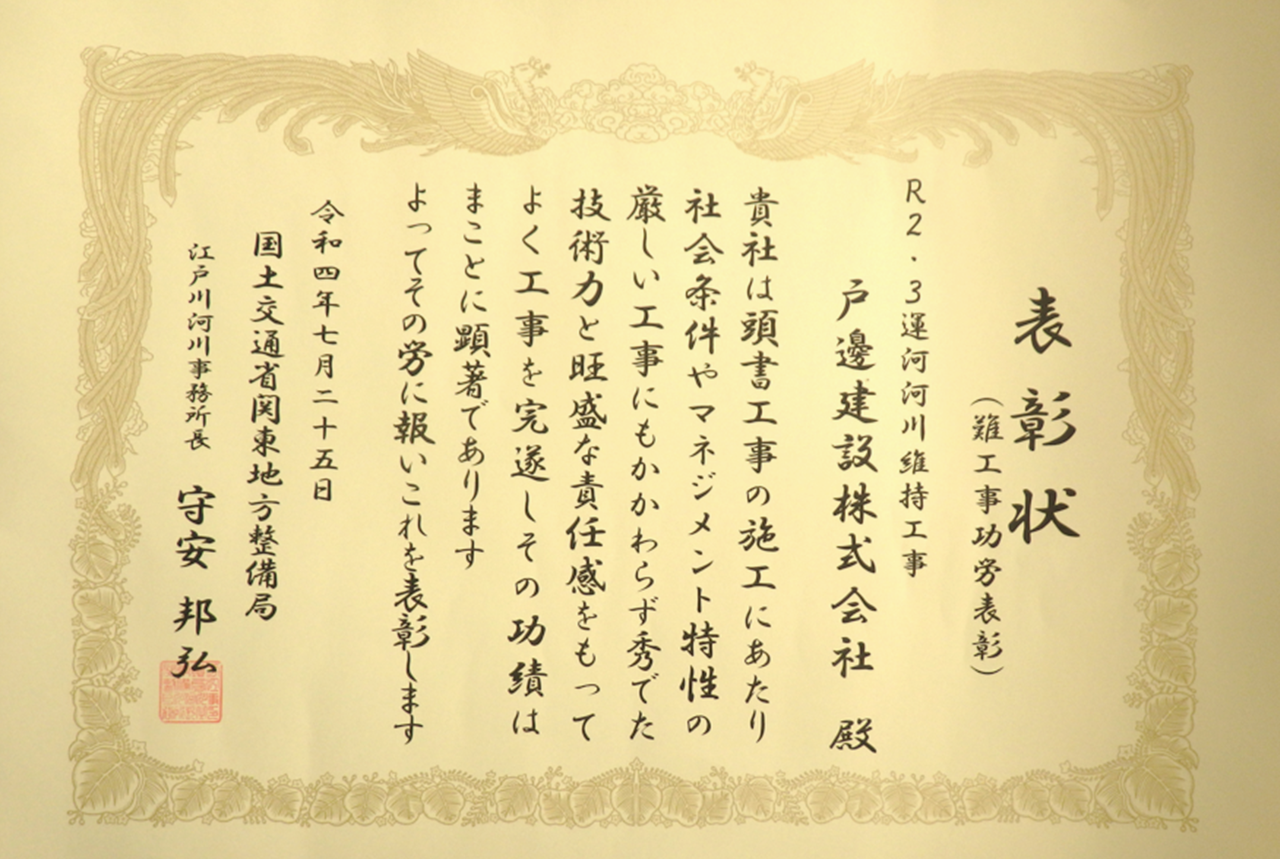 表彰状
（難工事功労表彰）
R2・3運河河川維持工事
戸邊建設株式会社 殿
貴社は頭書工事の施工にあたり
社会条件やマネジメント特性の
厳しい工事にもかかわらず秀でた
技術力と旺盛な責任感をもって
よく工事を完遂しその功績は
まことに顕著であります
よってその労に報いこれを表彰します
令和四年七月二十五日
国土交通省関東地方整備局
江戸川河川事務所長 守安 邦弘